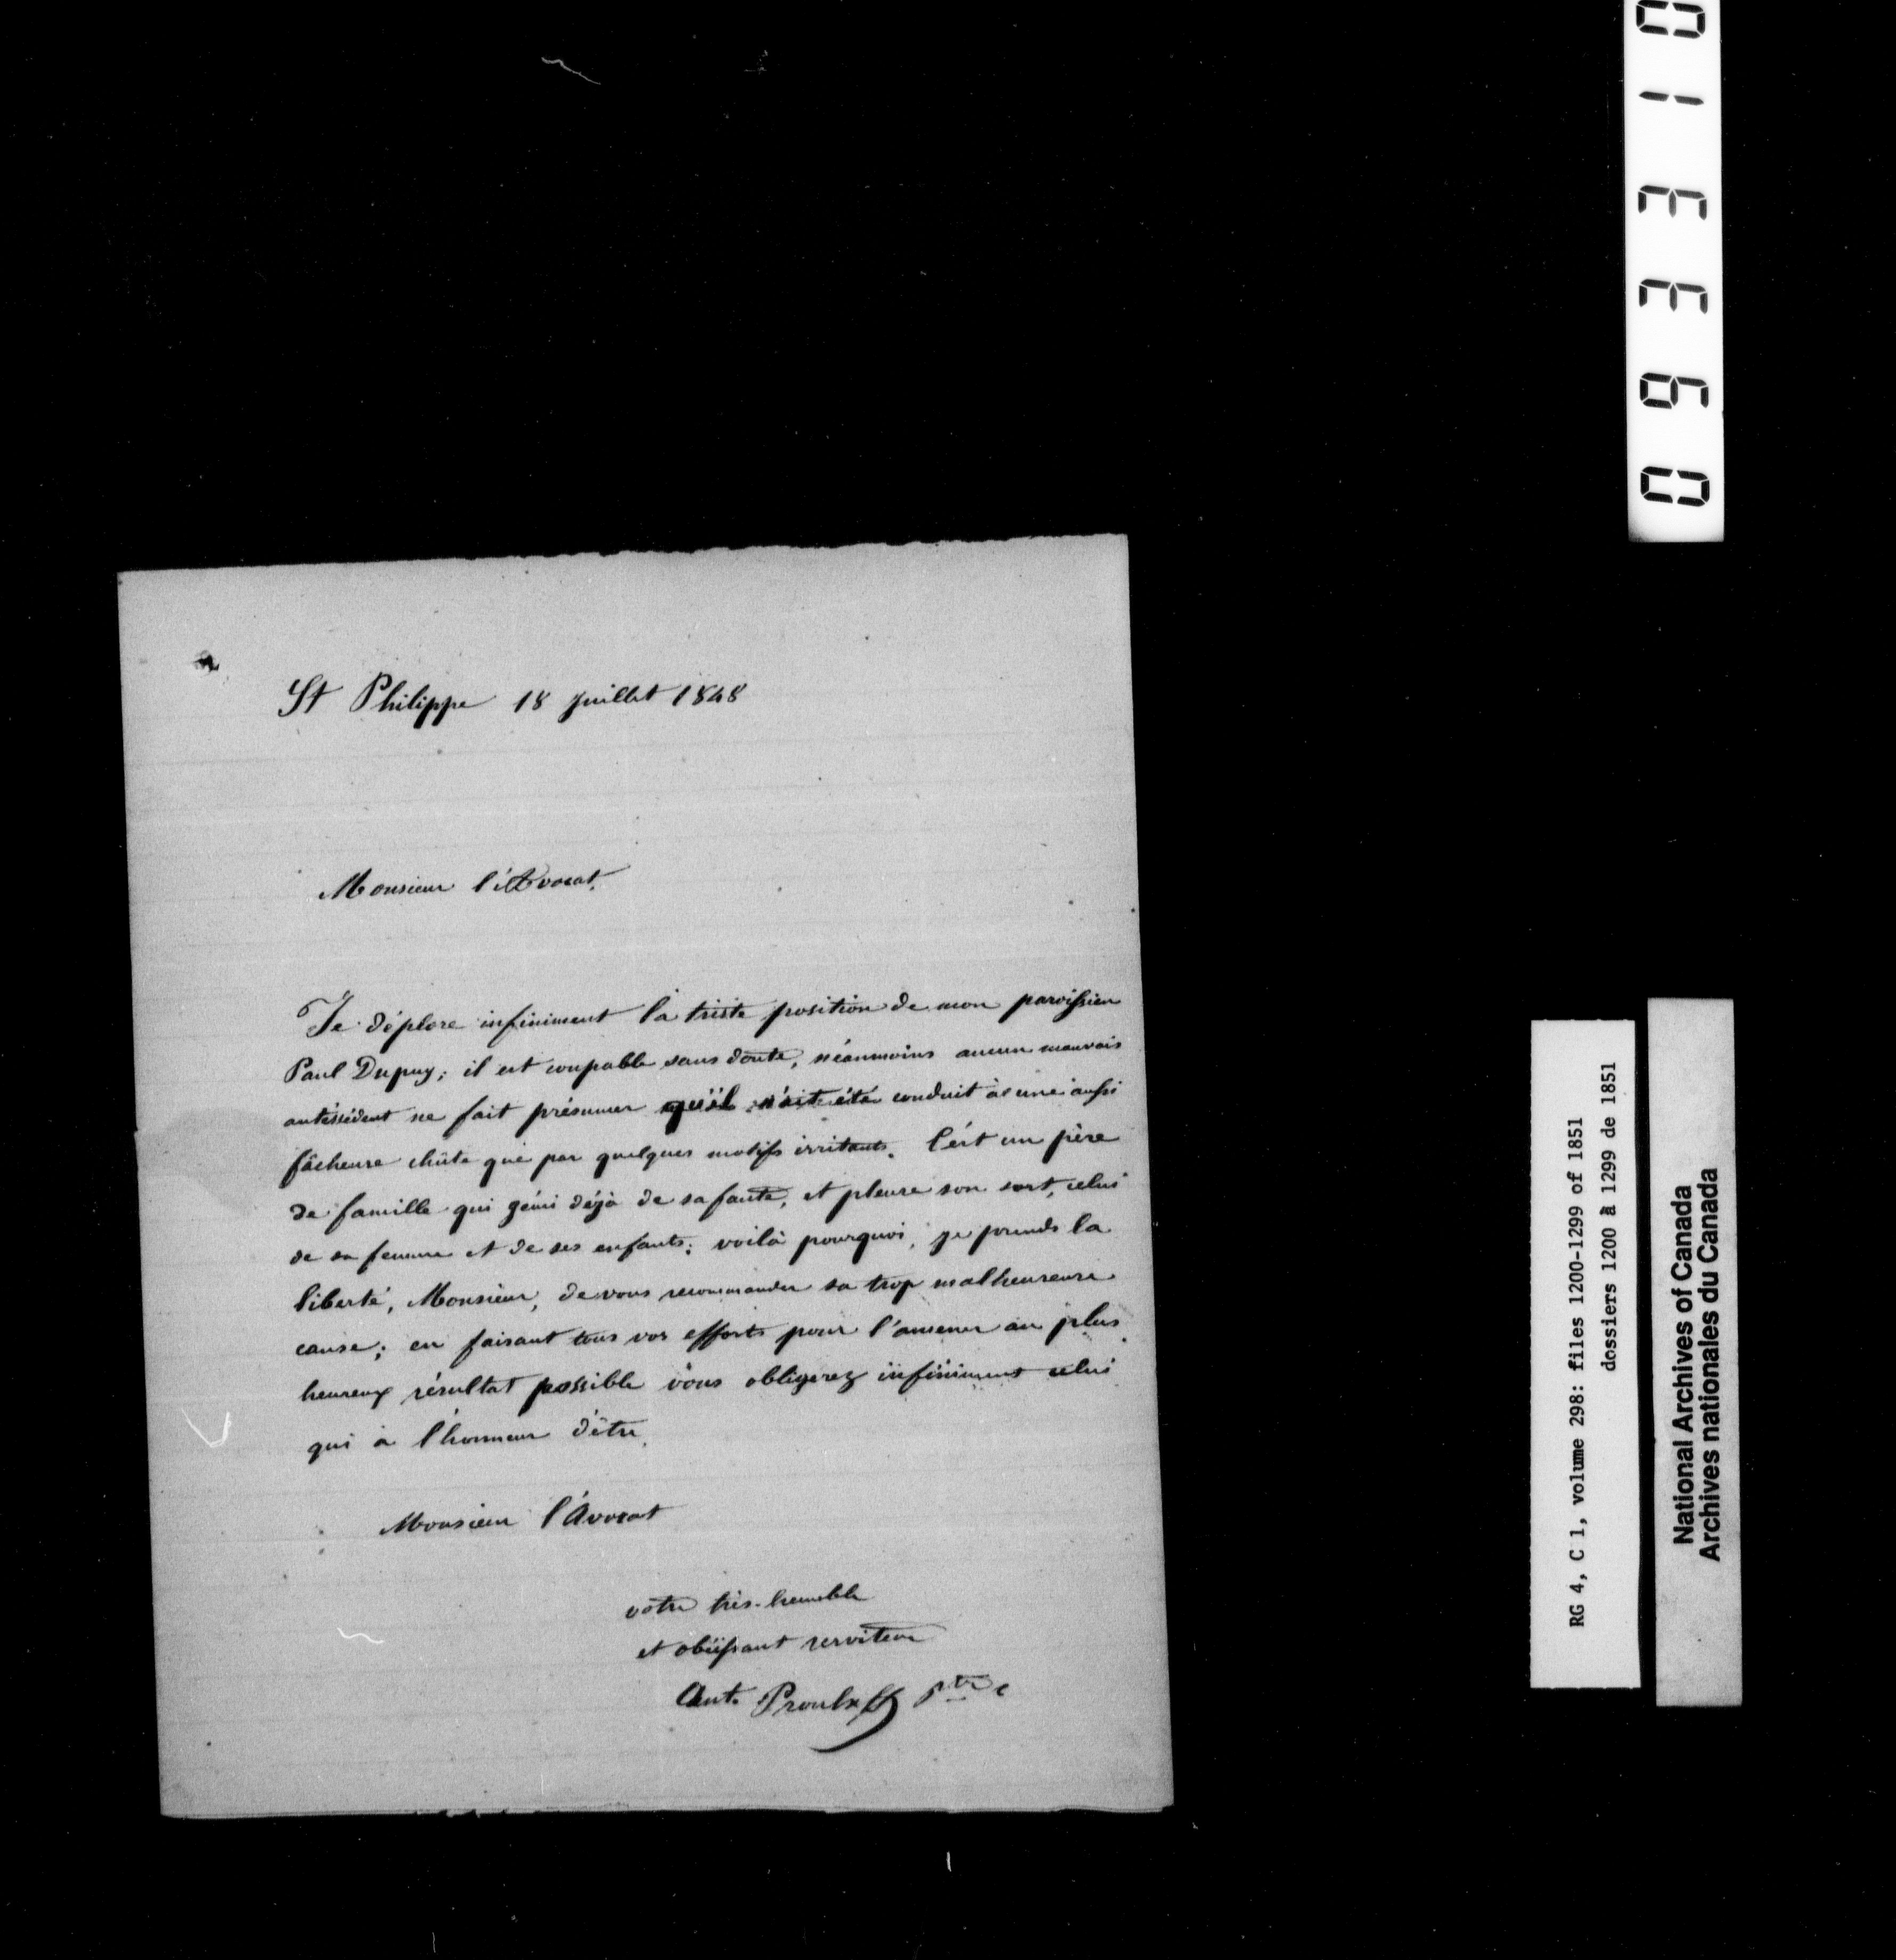 St Philippe 18 juillet 1848
Monsieur l'Avocat,
Je déplore infiniment la triste position de mon paroissien
Paul Dupuy; il est coupable sans doute, néanmoins aucun mauvais
antécédent ne fait présumer qu'il n'ait été conduit à une aussi
fâcheuse chûte que par quelques motifs irritants. C'est un père
de famille qui gémi déjà de sa faute, et pleure son sort, celui
de sa femme et de ses enfants; voilà pourquoi, je prends la
liberté, Monsieur, de vous recommander sa trop malheureuse
cause; en faisant tous vos efforts pour l'amener au plus
heureux résultat possible vous obligerez infiniment celui
qui a l'honneur d'être,
Monsieur l'Avocat
votre très-humble
et obéissant serviteur
Ant. Proulx Ptre
0 1 3 3 6 0
RG 4, C 1, volume 298: files 1200-1299 of 1851
dossiers 1200 à 1299 de 1851
National Archives of Canada
Archives nationales du Canada